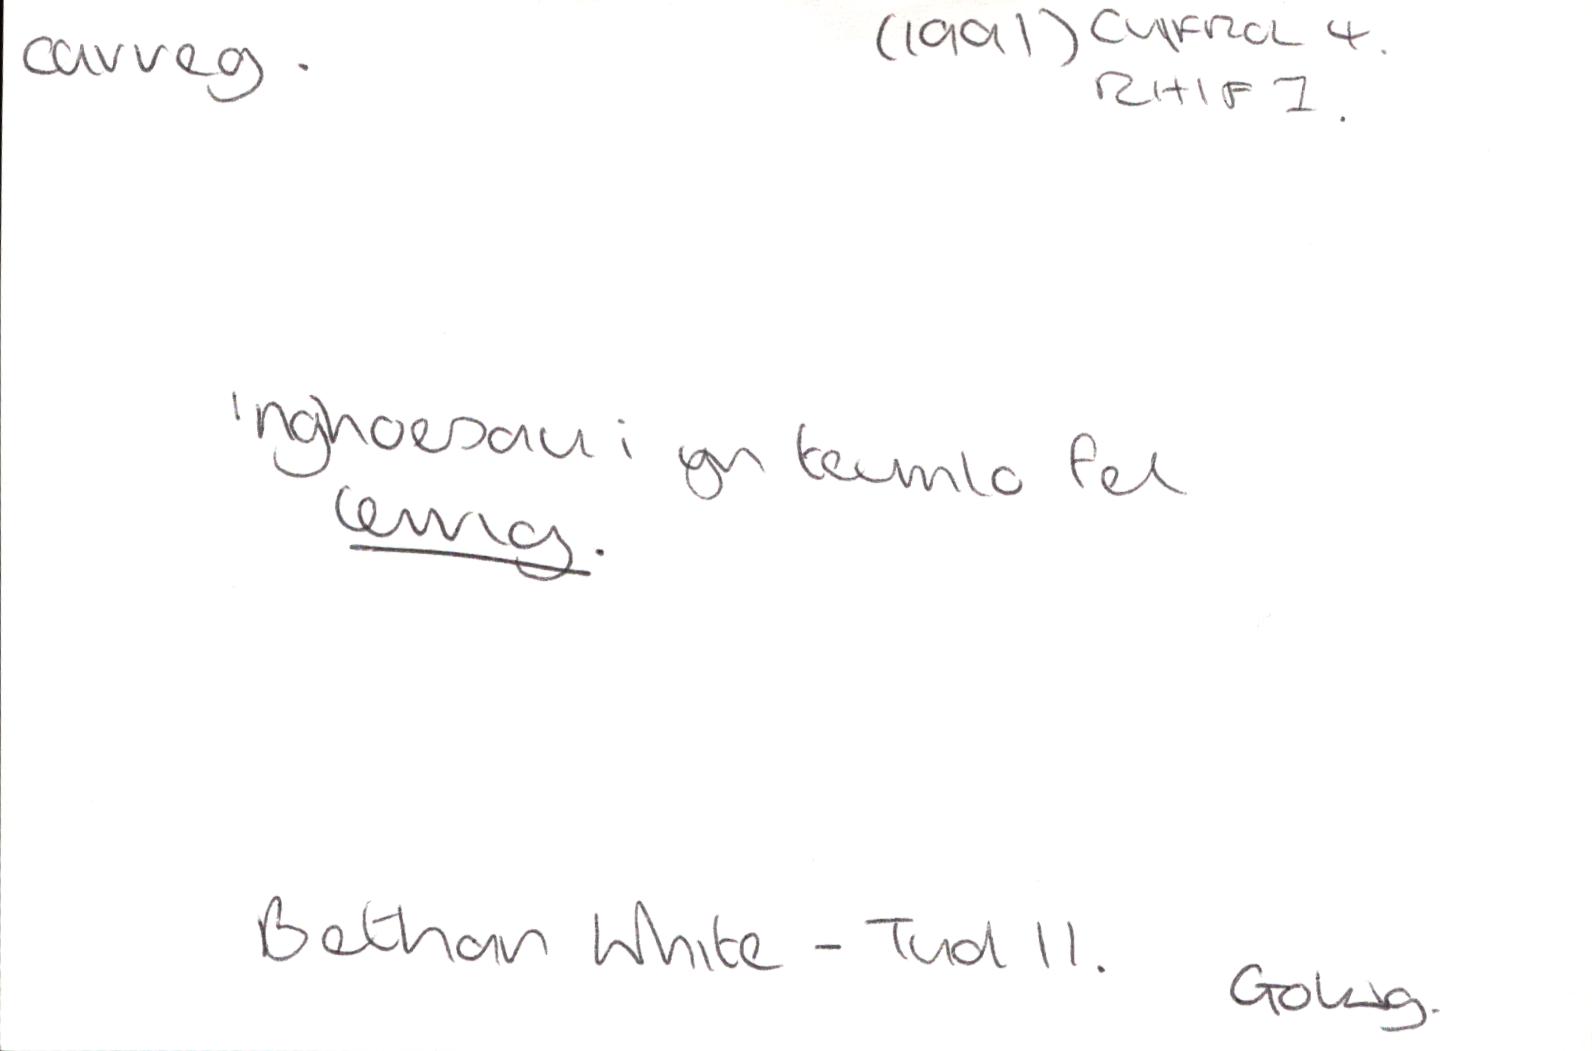 carreg.
(1991) CYFROL 4.
RHIF 1.
'nghoesau i yn teimlo fel
cerrig.
Bethan White - Tud 11.
Golwg.